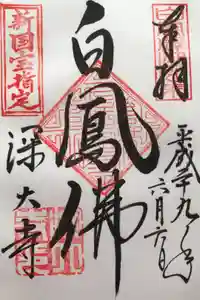 奉拝
平成二十九年
六月六日
白鳳佛
新国宝指定
深大寺